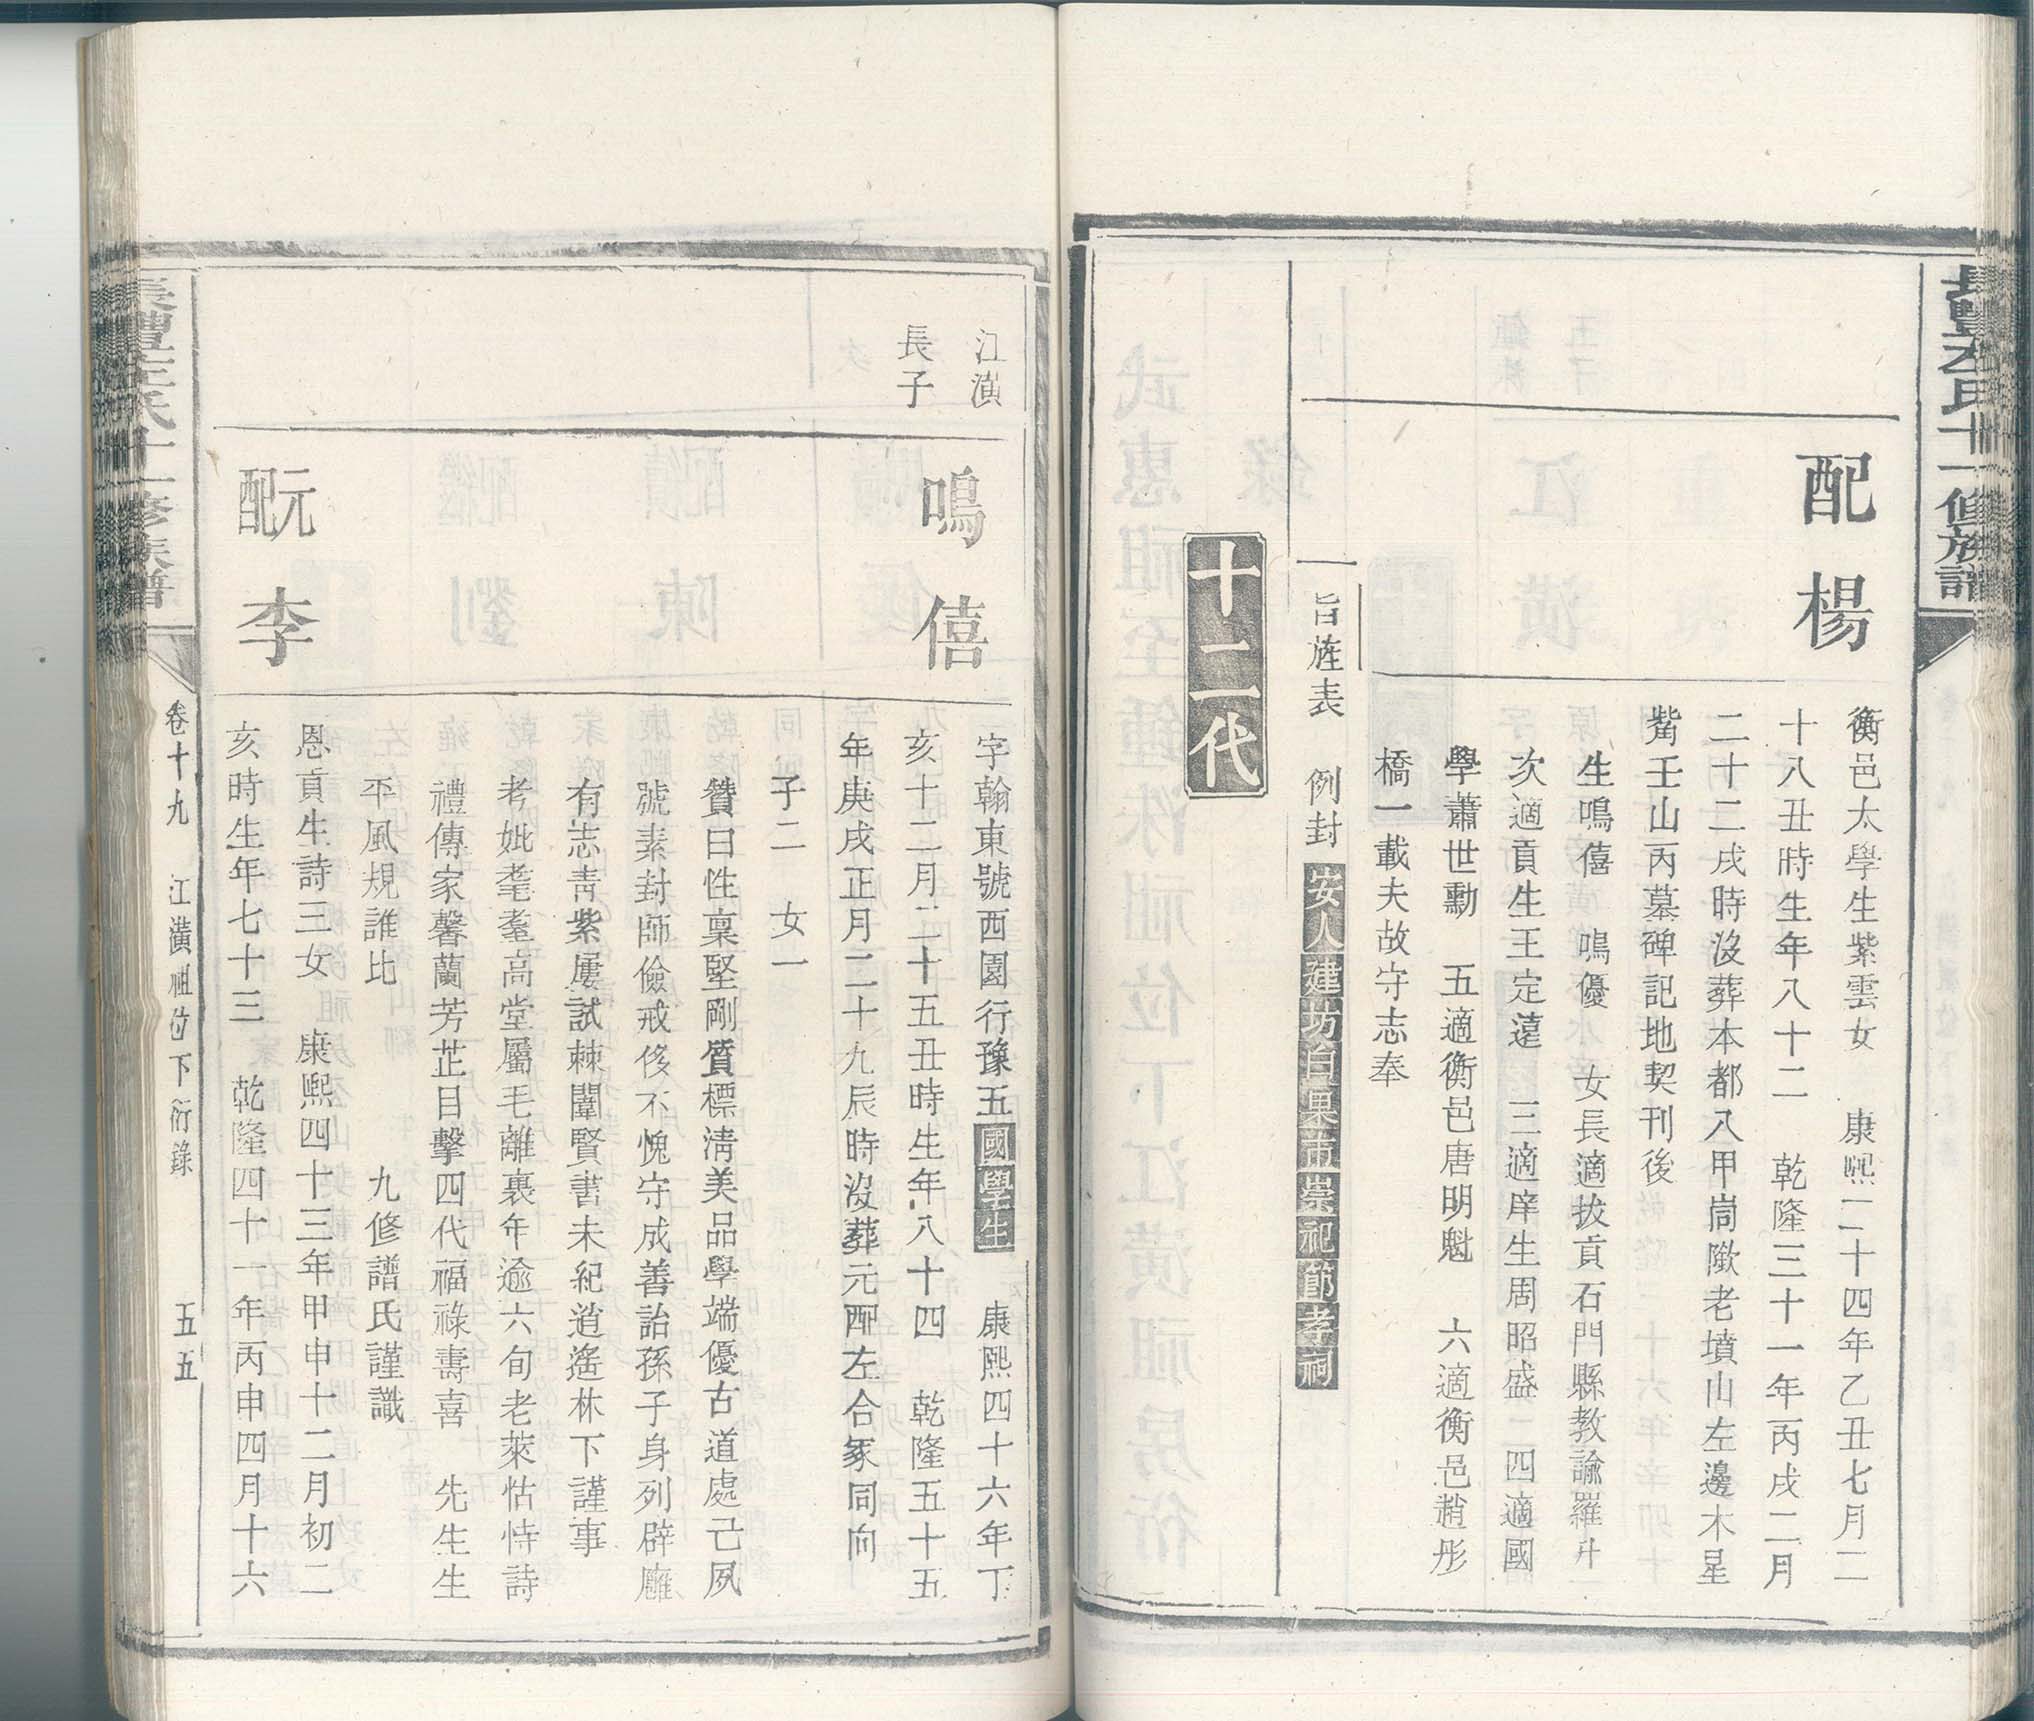 長豐左氏十一修族譜
配楊
衡邑太學生紫雲女 康熙二十四年乙丑七月二
十八丑時生年八十二 乾隆三十一年丙戌二月
二十二戌時沒葬本都八甲崗㘕老墳山左邊木星
嘴壬山丙墓碑記地契刊後
生鳴僖 鳴優 女長適拔貢石門縣教諭羅升
次適貢生王定遠 三適庠生周昭盛二四適國
學蕭世勳 五適衡邑唐明魁 六適衡邑趙彤
橋一載夫故守志奉
旨旌表 例封安人建坊白果市崇祀節孝祠
十二代
江潢
長子
鳴僖
字翰東號西園行豫五國學生 康熙四十六年丁
亥十二月二十五丑時生年八十四 乾隆五十五
年庚戌正月二十九辰時沒葬元配左合冢同向
子二 女一
贊曰性稟堅剛質標淸美品學端優古道處己夙
號素封師儉戒侈不愧守成善詒孫子身列辟廱
有志靑紫屢試棘闈賢書未紀道遙林下謹事
考妣耄耋高堂屬毛離裏年逾六旬老萊怙恃詩
禮傳家馨蘭芳芷目擊四代福祿壽喜 先生生
平風規誰比 九修譜氏謹識
元配李
恩貢生詩三女 康熙四十三年甲申十二月初二
亥時生年七十三 乾隆四十一年丙申四月十六
長豐左氏十一修族譜
卷十九 江潢祖位下衍錄 五五